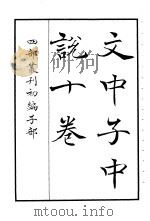 文中子中
說十卷
四部叢刊初編子部